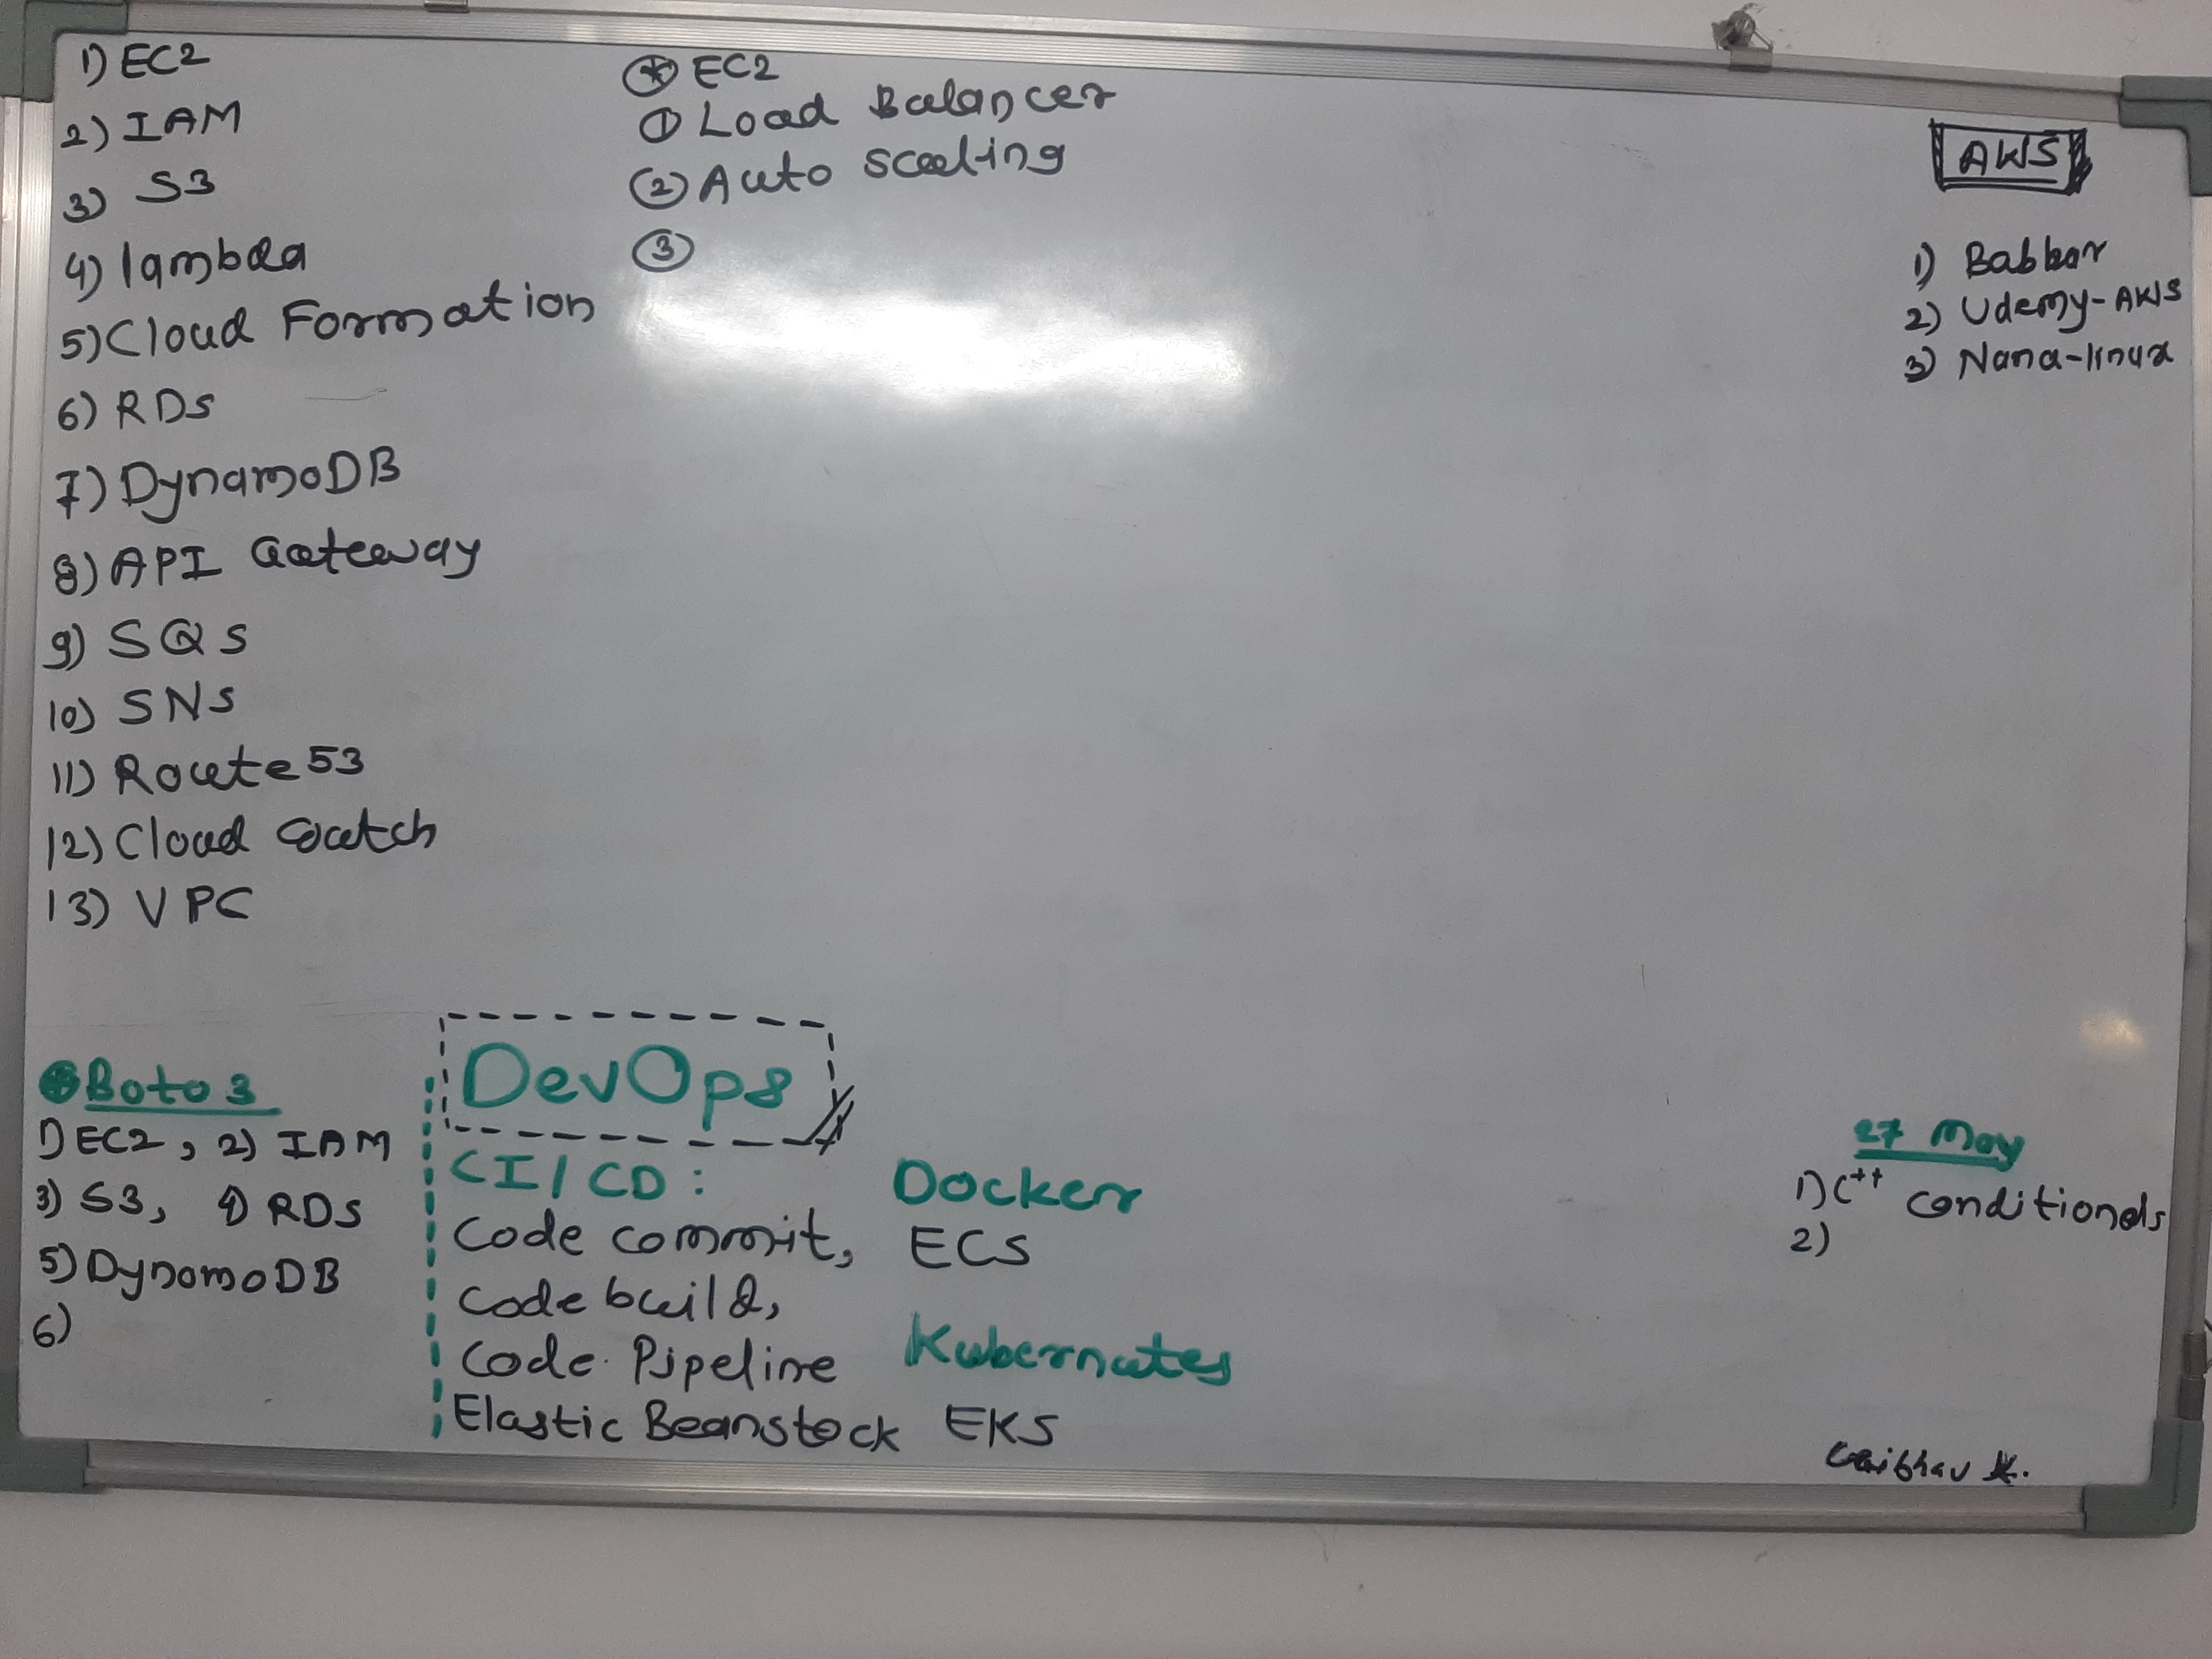 1) EC2
2) IAM
3) S3
4) lambda
5) Cloud Formation
6) RDS
7) DynamoDB
8) API Gateway
9) SQS
10) SNS
11) Route 53
12) Cloud watch
13) VPC
* EC2
1 Load Balancer
2 Auto scaling
3
AWS
1) Babbar
2) Udemy-AWS
3) Nana-linux
Boto 3
1) EC2, 2) IAM
3) S3, 4) RDS
5) DynamoDB
6)
DevOps
CI/CD:
Code commit,
Code build,
Code Pipeline
Elastic Beanstock
Docker
ECS
Kubernutes
EKS
27 May
1) C++ conditionals
2)
Vaibhav K.